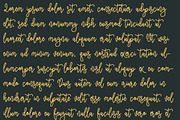 Lorem ipsum dolor sit amet, consectetur adipiscing
elit, sed diam nonummy nibh euismod tincidunt ut
laoreet dolore magna aliquam erat volutpat. Ut wisi
enim ad minim veniam, quis nostrud exerci tation ul-
lamcorper suscipit lobortis nisl ut aliquip ex ea com-
modo consequat. Duis autem vel eum iriure dolor in
hendrerit in vulputate velit esse molestie consequat, vel
illum dolore eu feugiat nulla facilisis at vero eros et